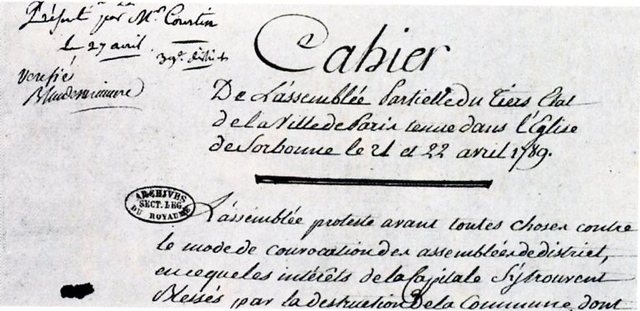 Présenté par Mr. Courtin
le 27 avril
verifié
Cahier
De L'assemblée Partielle du Tiers Etat
de la Ville de Paris tenue dans l'Eglise
de Sorbonne le 21 et 22 avril 1789.
ARCHIVES
SECT. LEG.
DU ROYAUME
L'assemblée proteste avant toutes choses contre
le mode de convocation des assemblées de district,
en ce que les intérêts de la Capitale s'y trouvent
Blessés par la destruction De la Commune, dont